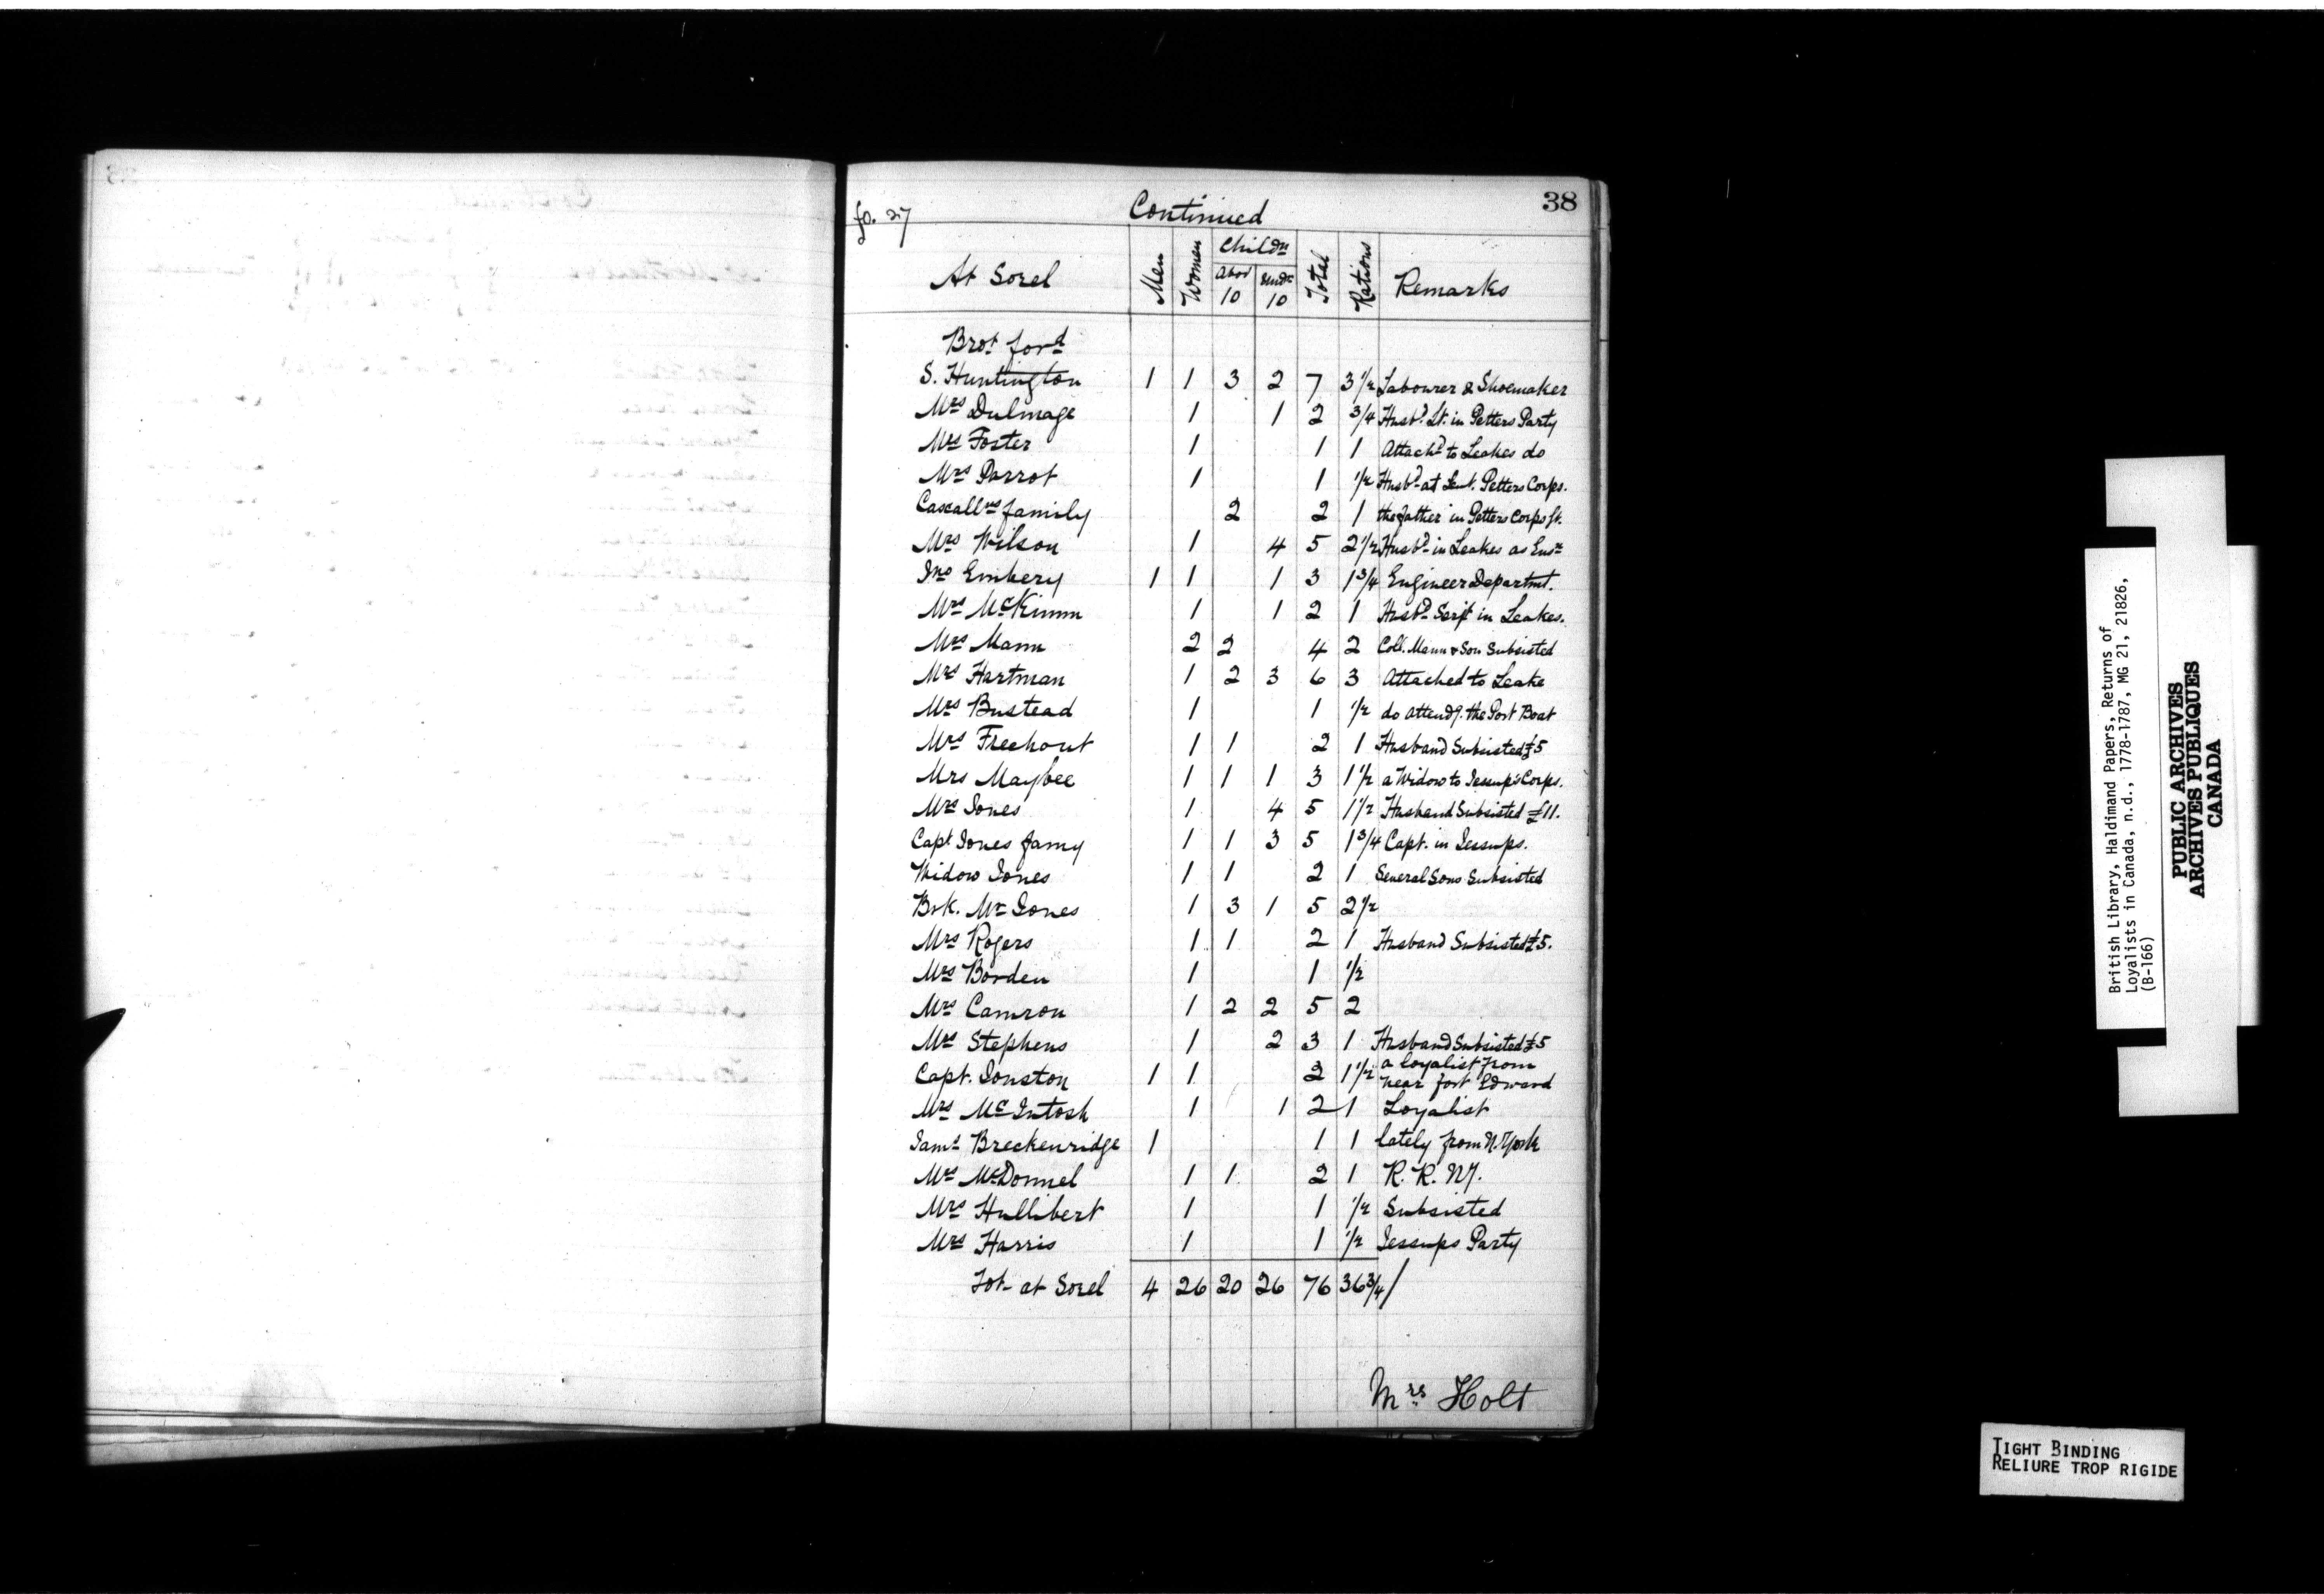 38
fo. 27
Continued
At Sorel Men Women Childn Abov 10 Undr 10 Total Rations Remarks
Brot ford
S. Huntington 1 1 3 2 7 3 1/2 Labourer & Shoemaker
Mrs Dulmage 1 1 2 3/4 Husbd Lt. in Petters Party
Mrs Foster 1 1 1 Attachd to Leakes do
Mrs Parrot 1 1 1/2 Husbd at Petters Corps.
family 2 2 1 the father in Petters Corps
Mrs Wilson 1 4 5 2 1/2 Husbd in Leakes as Ensn
Jno Embery 1 1 1 3 1 3/4 Engineer Departmt.
Mrs McKimm 1 1 2 1 Husbd Serjt in Leakes.
Mrs Mann 2 2 4 2 Coll. Mann & Son Subsisted
Mrs Hartman 1 2 3 6 3 Attached to Leake
Mrs Bustead 1 1 1/2 do attendg. the Post Boat
Mrs Freehout 1 1 2 1 Husband Subsisted £5
Mrs Maybee 1 1 1 3 1 1/2 a Widow to Jessup's Corps.
Mrs Jones 1 4 5 1 1/2 Husband Subsisted £11.
Capt Jones famy 1 1 3 5 1 3/4 Capt. in Jessups.
Widow Jones 1 1 2 1 Several Sons Subsisted
Mr Jones 1 3 1 5 2 1/2
Mrs Rogers 1 1 2 1 Husband Subsisted £5.
Mrs Borden 1 1 1/2
Mrs Camron 1 2 2 5 2
Mrs Stephens 1 2 3 1 Husband Subsisted £5
Capt. Jonston 1 1 2 1 1/2 a loyalist from
near fort Edward
Mrs McIntosh 1 1 2 1 Loyalist
Jams Breckenridge 1 1 1 lately from N. York
Mrs McDonnel 1 1 2 1 R. R. NY.
Mrs Hullibert 1 1 1/2 Subsisted
Mrs Harris 1 1 1/2 Jessups Party
Tot at Sorel 4 26 20 26 76 36 3/4/
Mrs Holt
British Library, Haldimand Papers, Returns of
Loyalists in Canada, n.d., 1778-1787, MG 21, 21826,
(B-166)
PUBLIC ARCHIVES
ARCHIVES PUBLIQUES
CANADA
TIGHT BINDING
RELIURE TROP RIGIDE